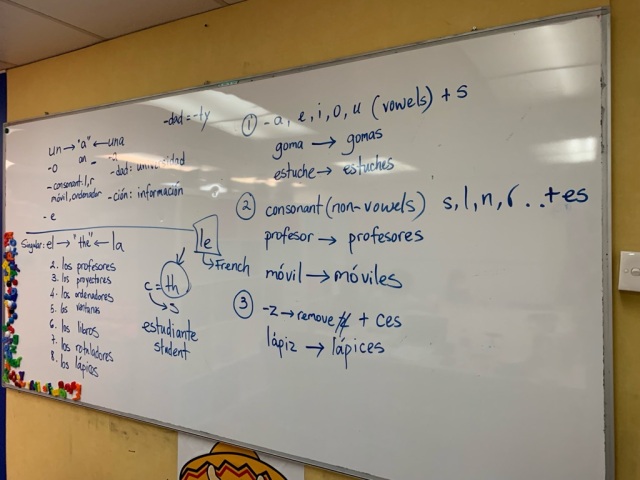 -dad = -ty
un → "a" ← una
-o an - -a
-dad: universidad
-consonant: l, r
móvil, ordenador
-ción: información
-e
Singular: el → "the" ← la
le
French
2. los profesores
3. los proyectores
4. los ordenadores
5. las ventanas
6. los libros
7. los rotuladores
8. los lápices
c = th
s
estudiante
student
① -a, e, i, o, u (vowels) + s
goma → gomas
estuche → estuches
② consonant (non-vowels) s, l, n, r .. +es
profesor → profesores
móvil → móviles
③ -z → remove z + ces
lápiz → lápices